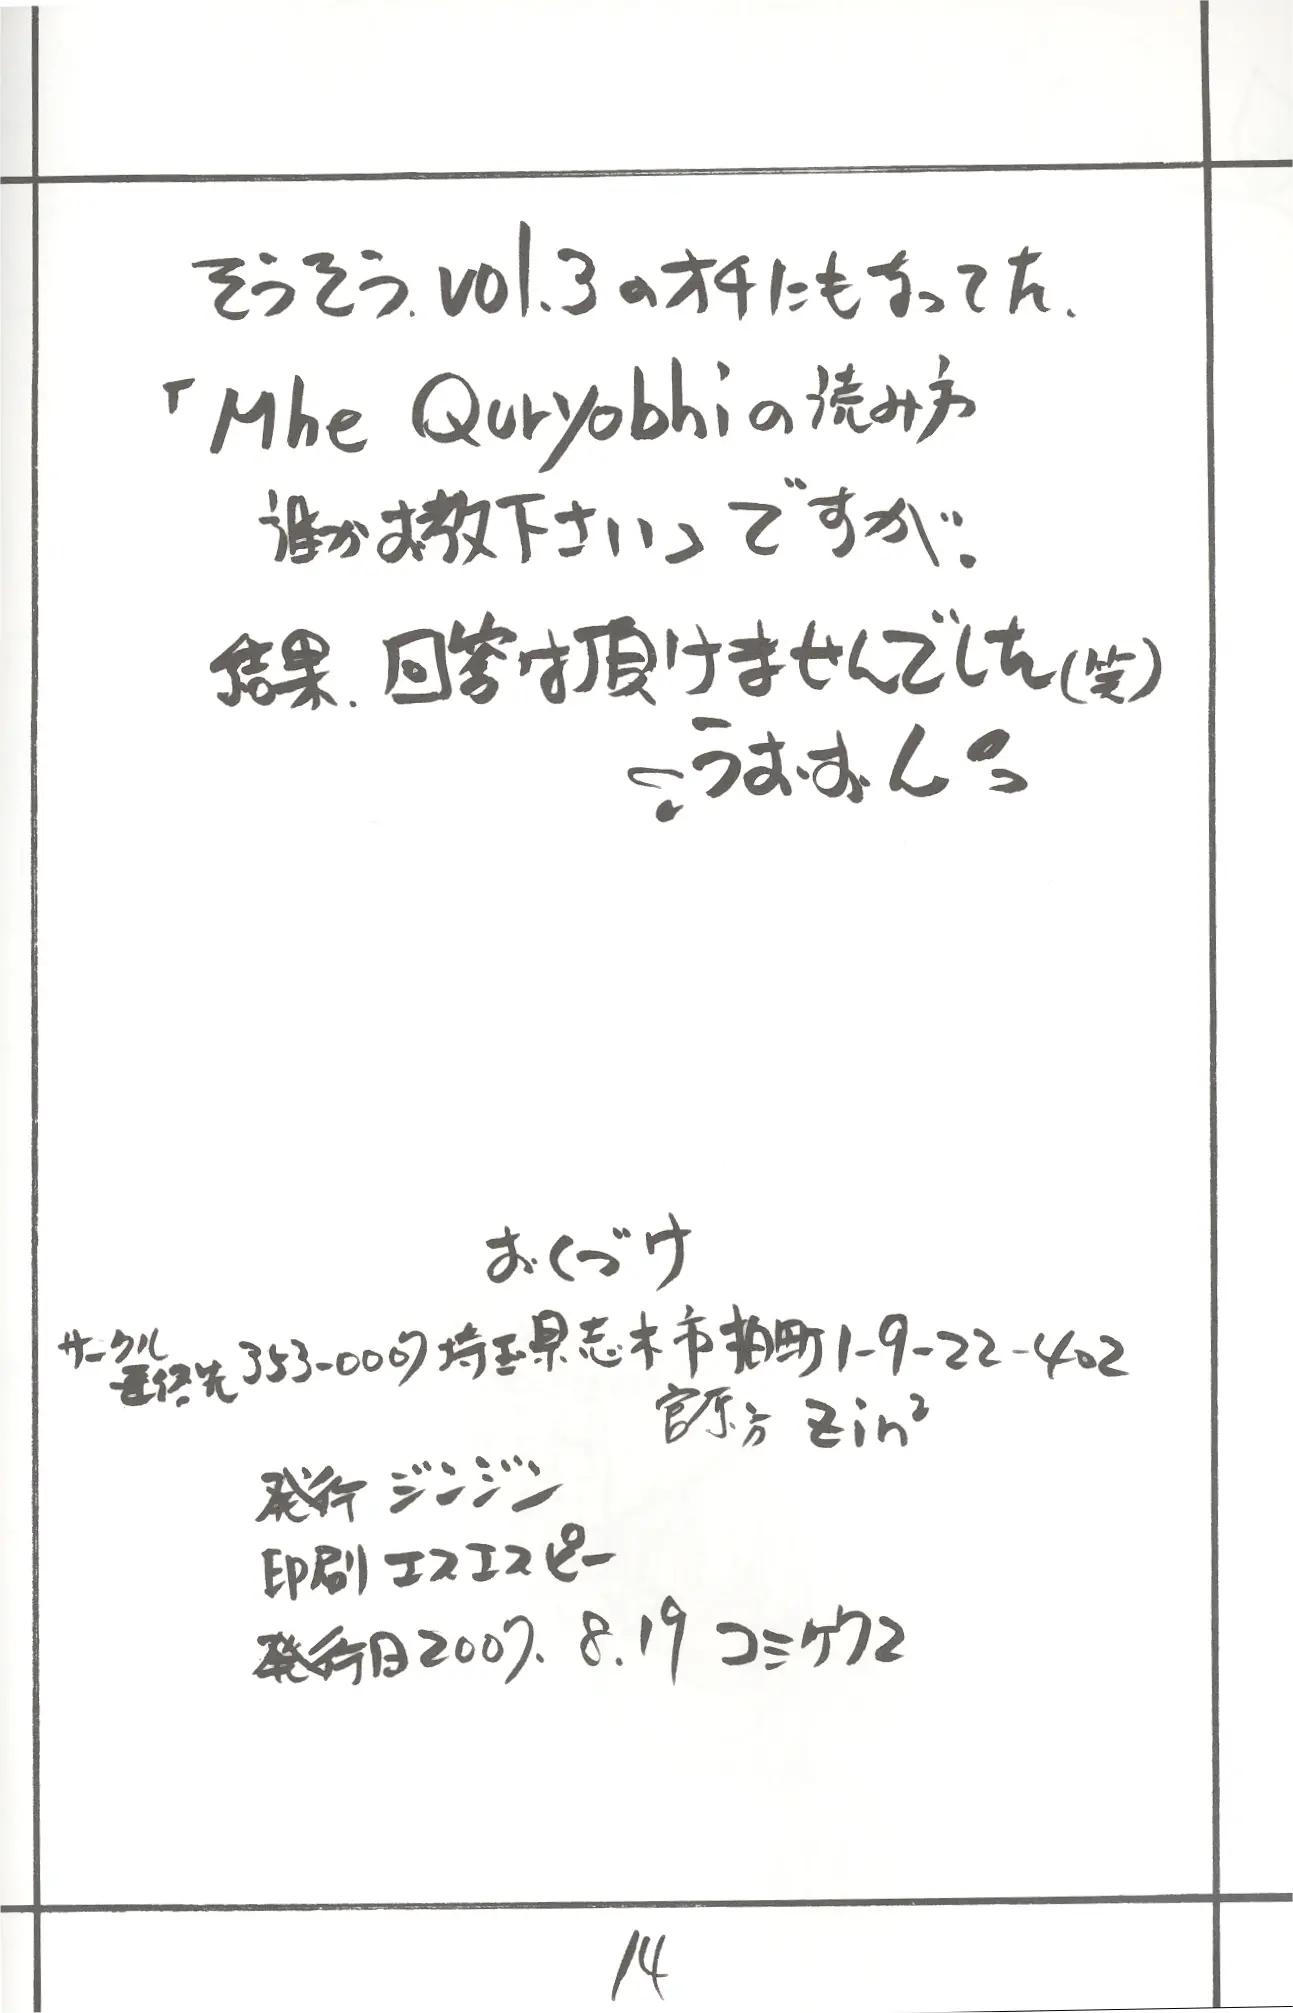 そうそう、vol.3のオチにもなってた、
「Mhe Quryobhiの読み方
誰かお教下さい」ですが。
結果、回答は頂けませんでした(笑)
うおおん
おくづけ
サークル
連絡先 353-0007 埼玉県志木市柏町1-9-22-402
方 Zin²
発行 ジンジン
印刷 エスエスピー
発行日 2007. 8.19 コミケ72
14